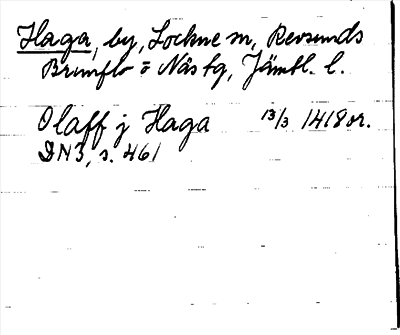 Haga, by, Lockne sn, Revsunds
Brunflo o Näs tg, Jämtl. l.
Olaff j Haga 13/3 1418 or.
DN3, s. 461